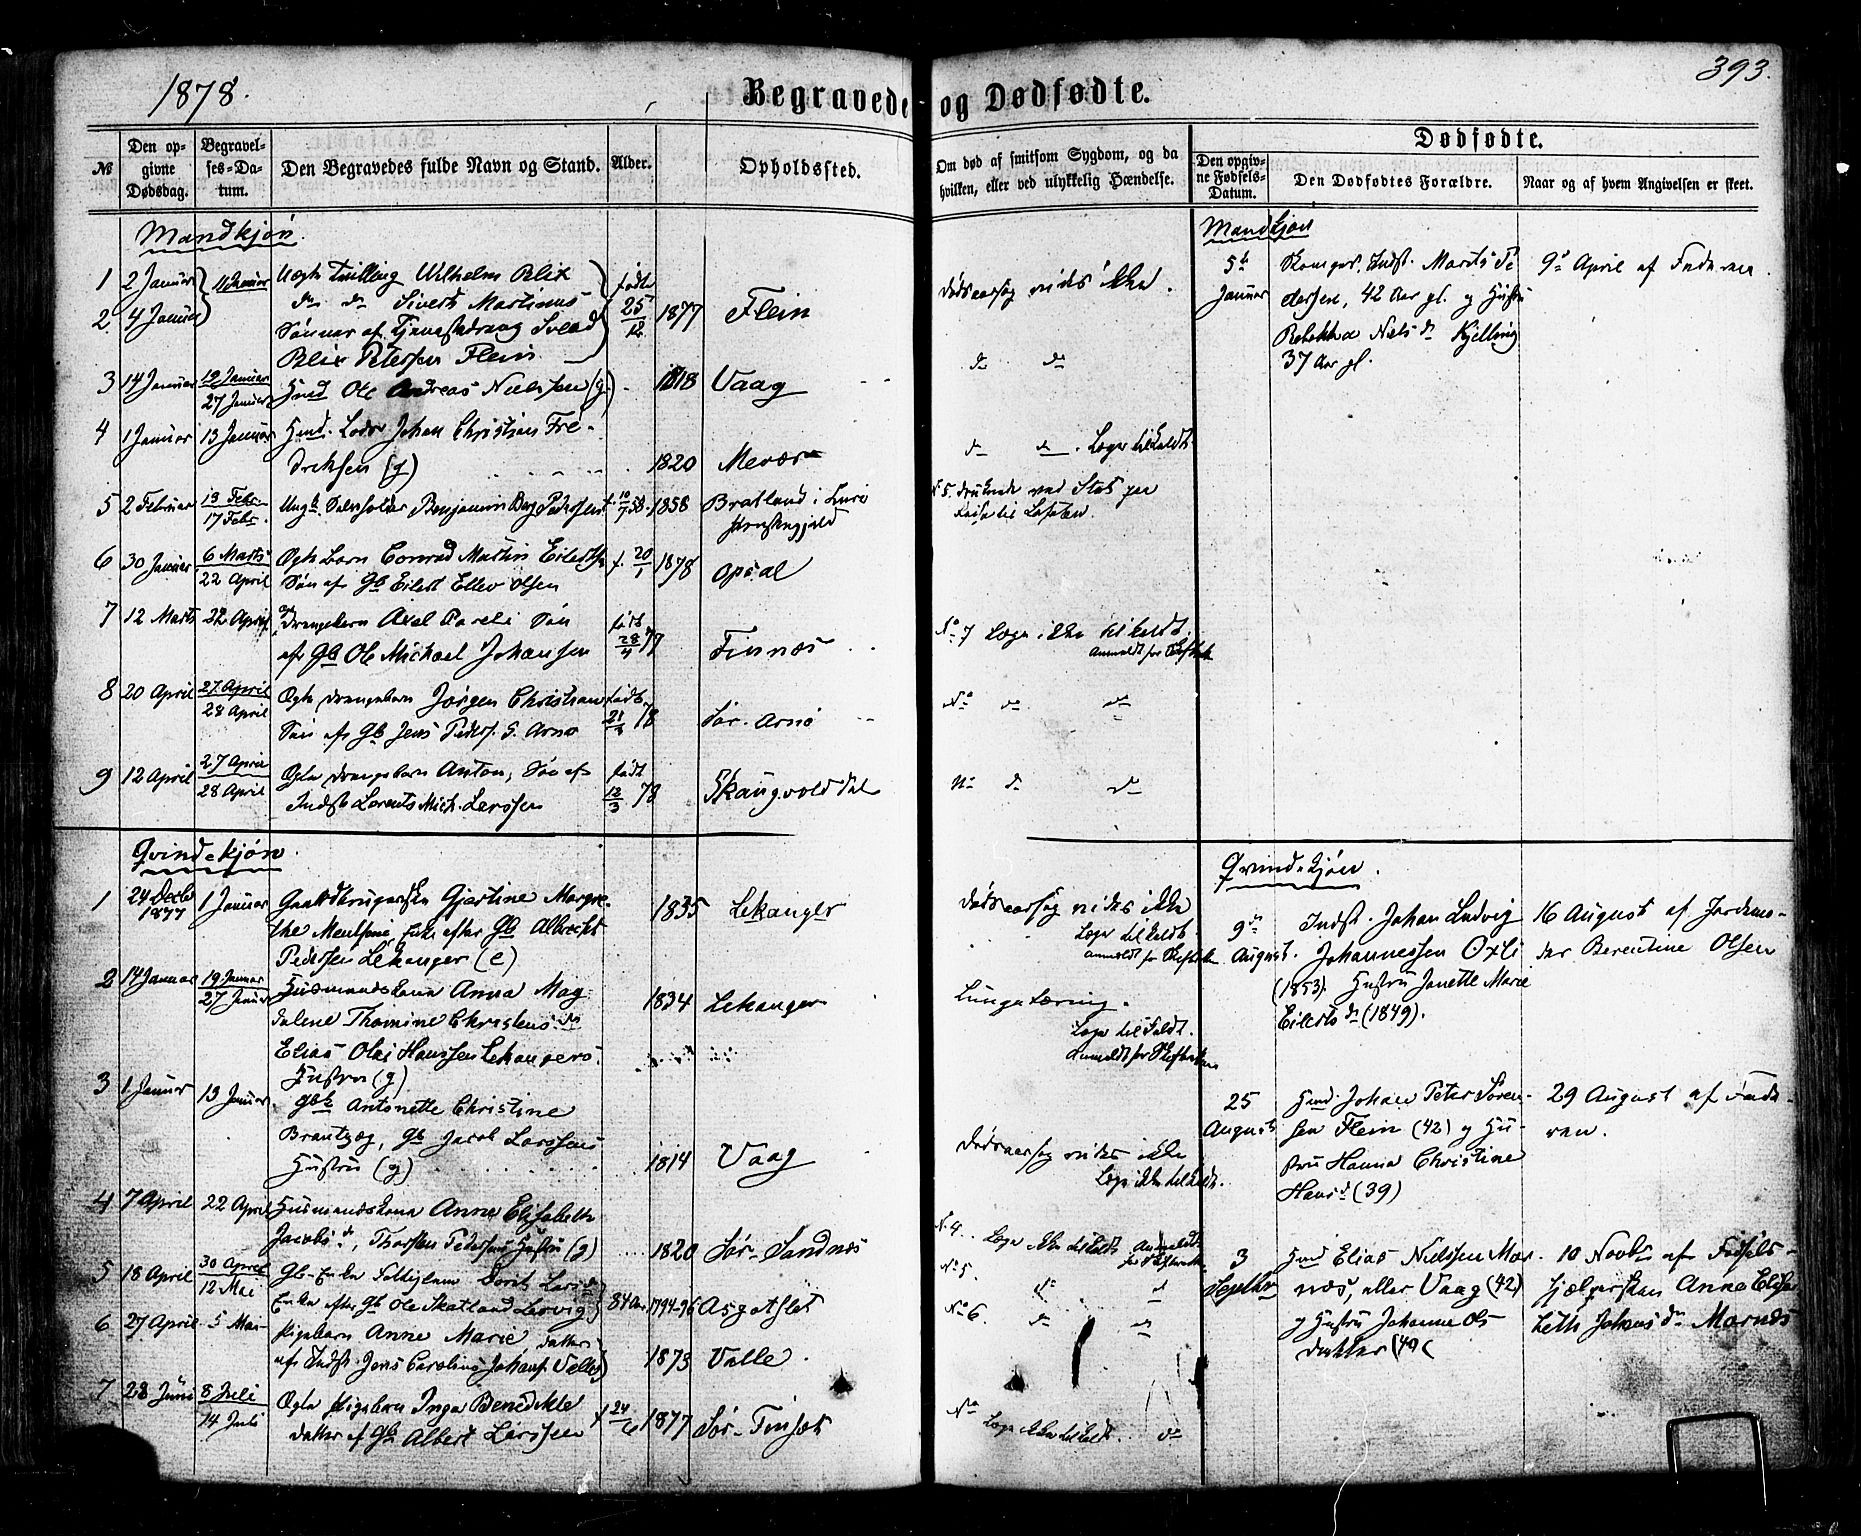 1878.
Begravede og Dødfødte.
393.
№
Den opgivne Dødsdag.
Begravelses-Datum.
Den Begravedes fulde Navn og Stand.
Alder.
Opholdssted.
Om død af smitsom Sygdom, og da hvilken, eller ved ulykkelig Hændelse.
Dødfødte.
Den opgivne Fødsels-Datum.
Den Dødfødtes Forældre.
Naar og af hvem Angivelsen er skeet.
Mandkjøn.
1 2 Januar 11 Januar Ægte Tvilling Wilhelm Blix født
2 4 Januar do do Sivert Martinus 25/12 1877 Flein
Sønner af Tjenestedreng
Blix Petersen Flein
3 14 Januar 19 Januar Hmd Ole Andreas Nielssen (g) 1818 Vaag
27 Januar
4 1 Januar 13 Januar Hmd. Johan Christian Fre-
dreksen (g) 1820 Mevær
5 2 Februar 13 Febr. Ungk. Benjamin Berg Pedersen f. 10/7 58 1858 Bratland i Lurø
17 Febr. Præstegjeld
6 30 Januar 6 Marts Ægte Barn Conrad Martin f. 20/1 1878 Opsal
22 April Søn af Gb Eilert Ellev Olsen
7 12 Marts 22 April Drengebarn Axel Pareli Søn født
af Gb Ole Mickael Johansen 28/4 77 Finnæs
8 20 April 27 April Ægte Drengebarn Jørgen Christian født
28 April Søn af Gb Jens Peders. S. Arnø 21/3 78 Sør-Arnø
9 12 April 27 April Ægte Drengebarn Anton, Søn af født
28 April Indst Lorents Mich. Larssen 12/3 78 Skaugvolddal
Dødsaarsag vides ikke.
do do
do do. Læge tilkaldt
N. 5. druknede ved Stat paa
Reise til Lofoten.
No 7 Læge ikke tilkaldt.
anmeldt for Skifteret
No do do
No do do
Mandkjøn
5te Indst. Morits Pe 9de April af Faderen.
Januar dersen, 42 Aar gl. og Hustru
Rebekka Niels dr Kjelling
37 Aar gl.
Qvindekjøn.
1 24 Decbr 1877 1 Januar Gjertine Margre-
the Enke efter Gb Albrecht 1835 Lekanger
Pedersen Lekanger (e)
2 14 Januar 19 Januar Husmandskone Anna Mag-
27 Januar dalene Thomine Christens dr 1834 Lekanger
Elias Olai Hanssen Lekangers
Hustru (g)
3 1 Januar 13 Januar Gbk Antonette Christine
Brantzæg, Gb Jacob Larssens
Hustru (g) 1814 Vaag
4 7 April 22 April Husmandskone Anne Elisabeth
Jacobs dr, Thorsten Pedersens Hustru (g) 1820 Sør-Sandnes
5 18 April 30 April Gb-Enke Dorit Lars dr
12 Mai Enke efter Gb Ole Skatland 84 Aar 1794-96 Asgotslet
6 27 April 5 Mai Pigebarn Anne Marie, datter
af Indst. Jens Carolius Johans. Valle 1873 Valle.
7 28 Juni 8 Juli Ægte Pigebarn Inga Benedikte f. 24/6 1877 Sør-Finset
14 Juli datter af Gb Albert Larssen
Dødsaarsag vides ikke
Læge tilkaldt.
anmeldt for Skifteretten
Lungetæring.
Læge tilkaldt.
Anmeldt for Skifteretten
Dødsaarsag vides ikke
Læge ikke tilkaldt.
N. 4. Læge ikke tilkaldt Anmeldt
for Skifteretten
No 5. do do
No 6. do do
No Læge ikke tilkaldt. do
Qvindekjøn.
9de Indst. Johan Ludvig 16 August af Jordemo-
August. Johannessen Oxli der Berentine Olsen
(1853). Hustru Janette Marie
Eilerts dr (1849).
25 Hmd. Johan Peter Søren- 29 August af Fade-
August sen Flein (42) og Hu- ren.
stru Hanna Christine
Hans dr (39)
3 Hmd Elias Nielssen Mar- 10 Novbr af Fødsels-
Septbr næs, eller Vaag (42) hjælpersken Anne Elisa-
og Hustru Johanne Ols- beth Johns dr Marnæs
datter (40)